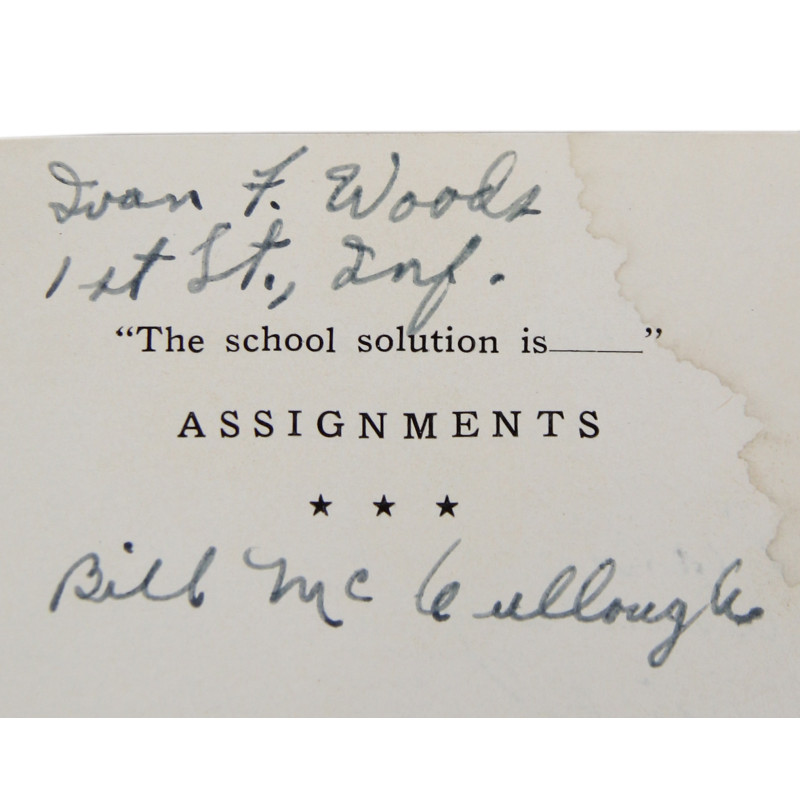 Ivan F. Woods
1st Lt., Inf.
“The school solution is_____”
ASSIGNMENTS
★ ★ ★
Bill McCullough